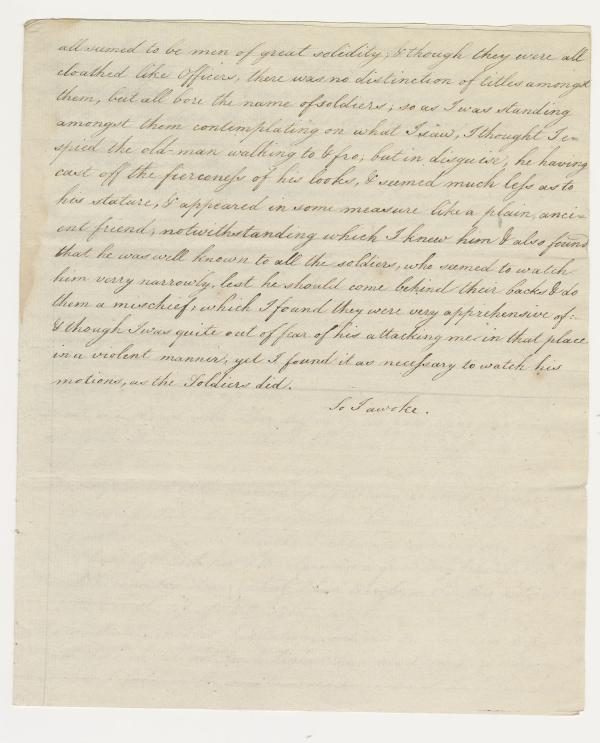 all seemed to be men of great solidity; & though they were all
cloathed like Officers, there was no distinction of titles amongst
them, but all bore the name of soldiers; so as I was standing
amongst them contemplating on what I saw, I thought I e-
spied the old-man walking to & fro; but in disguise, he having
cast off the fierceness of his looks, & seemed much less as to
his stature, & appeared in some measure like a plain, anci-
ent friend; notwithstanding which I knew him & also found
that he was well known to all the soldiers, who seemed to watch
him verry narrowly, lest he should come behind their backs & do
them a mischief, which I found they were very apprehensive of:
& though I was quite out of fear of his attacking me in that place
in a violent manner, yet I found it as necessary to watch his
motions, as the Soldiers did.
So I awoke.